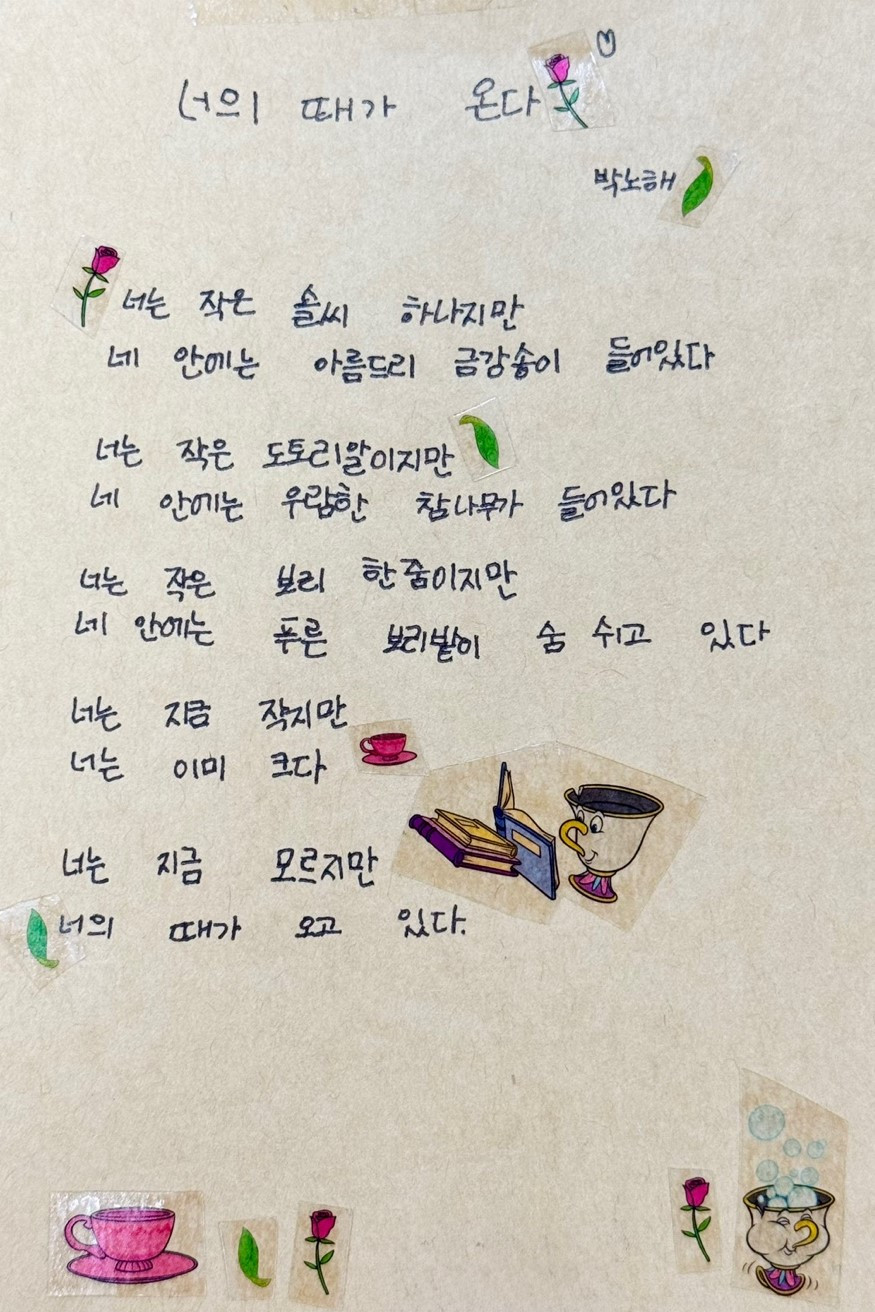 너의 때가 온다
박노해
너는 작은 솔씨 하나지만
네 안에는 아름드리 금강송이 들어있다
너는 작은 도토리알이지만
네 안에는 우람한 참나무가 들어있다
너는 작은 보리 한줌이지만
네 안에는 푸른 보리밭이 숨 쉬고 있다
너는 지금 작지만
너는 이미 크다
너는 지금 모르지만
너의 때가 오고 있다.